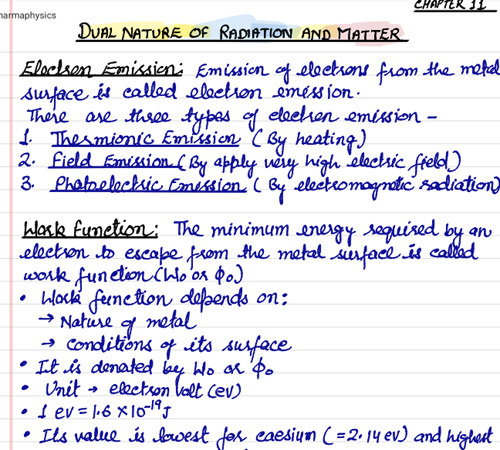 CHAPTER 11
harmaphysics
DUAL NATURE OF RADIATION AND MATTER
Electron Emission: Emission of electrons from the metal
surface is called electron emission.
There are three types of electron emission –
1. Thermionic Emission (By heating)
2. Field Emission (By apply very high electric field)
3. Photoelectric Emission (By electromagnetic radiation)
Work Function: The minimum energy required by an
electron to escape from the metal surface is called
work function (W₀ or ϕ₀)
• Work function depends on:
→ Nature of metal
→ conditions of its surface
• It is denoted by W₀ or ϕ₀
• Unit → electron volt (ev)
• 1 ev = 1.6 × 10⁻¹⁹ J
• Its value is lowest for caesium (= 2.14 ev) and highest